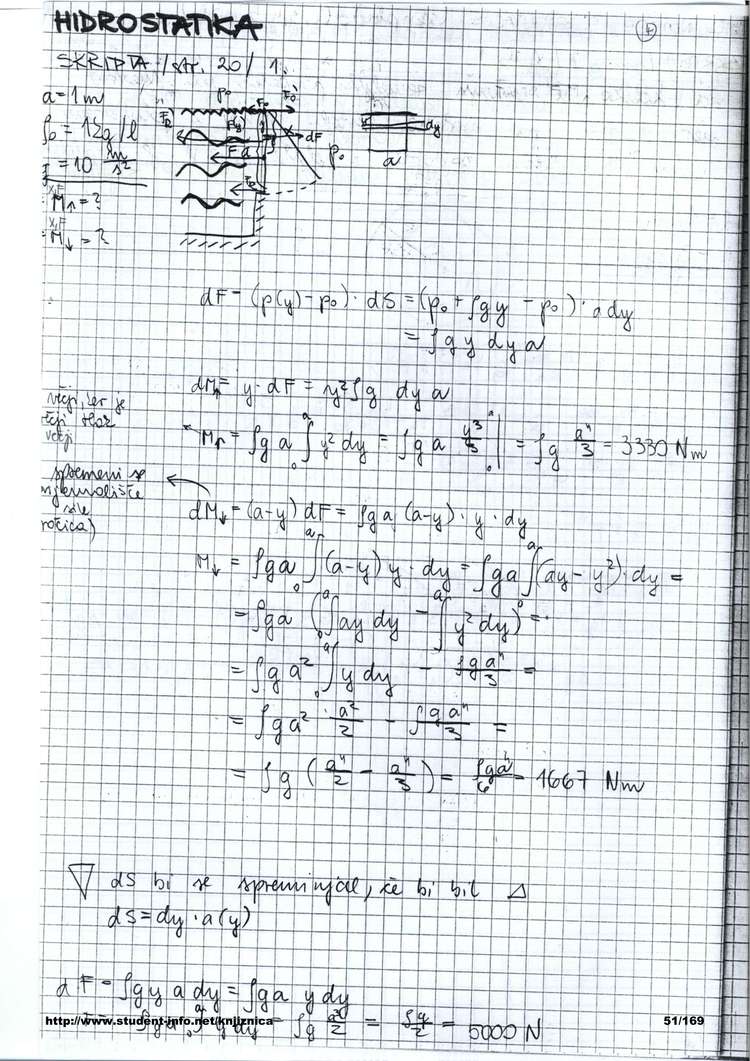 HIDROSTATIKA
SKRIPTA /str. 20/ 1.
a = 1 m
ρ₀ = 1 kg/l
g = 10 m/s²
M↑ = ?
M↓ = ?
p₀ F₀ F₀'
dF
p₀
dy
a
dF = (p(y) - p₀) · dS = (p₀ + ρgy - p₀) · a dy
= ρ g y dy a
dM↑ = y · dF = y² ρ g dy a
večji, ker je
večji tlak
večji
M↑ = ρ g a ∫₀ᵃ y² dy = ρ g a y³/3 |₀ᵃ = ρ g a⁴/3 = 3330 Nm
spremeni se
prijemališče
sile
(ročica)
dM↓ = (a-y) dF = ρ g a (a-y) · y · dy
M↓ = ρ g a ∫₀ᵃ (a-y) y · dy = ρ g a ∫₀ᵃ (ay - y²) · dy =
= ρ g a (∫₀ᵃ ay dy - ∫₀ᵃ y² dy) =
= ρ g a² ∫₀ᵃ y dy - ρ g a⁴/3 =
= ρ g a² · a²/2 - ρ g a⁴/3 =
= ρ g (a⁴/2 - a⁴/3) = ρ g a⁴/6 = 1667 Nm
▽ dS bi se spreminjal, če bi bil △
dS = dy · a(y)
dF = ρ g y a dy = ρ g a y dy
= ρ g a ∫₀ᵃ y dy = ρ g a³/2 = = 5000 N
http://www.student-info.net/knjiznica 51/169